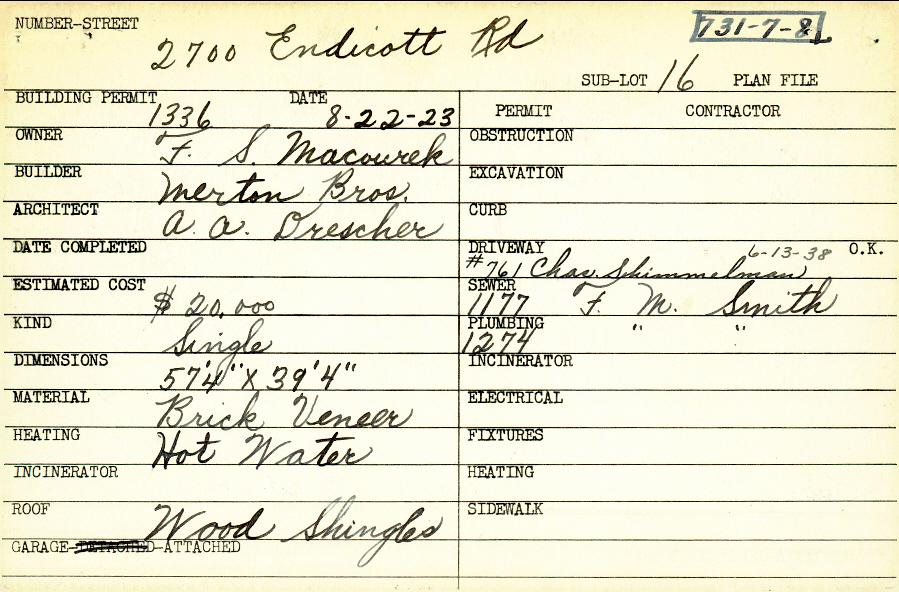 NUMBER-STREET 2700 Endicott Rd 731-7-81
SUB-LOT 16 PLAN FILE
BUILDING PERMIT 1336 DATE 8-22-23
PERMIT CONTRACTOR
OWNER F. S. Macourek
OBSTRUCTION
BUILDER Merton Bros.
EXCAVATION
ARCHITECT A. A. Drescher
CURB
DATE COMPLETED
DRIVEWAY #761 Chas. Schimmelman 6-13-38 O.K.
ESTIMATED COST $20,000
SEWER 1177 F. M. Smith
KIND Single
PLUMBING 1274 " "
DIMENSIONS 57'4" X 39'4"
INCINERATOR
MATERIAL Brick Veneer
ELECTRICAL
HEATING Hot Water
FIXTURES
INCINERATOR
HEATING
ROOF Wood Shingles
SIDEWALK
GARAGE-DETACHED-ATTACHED